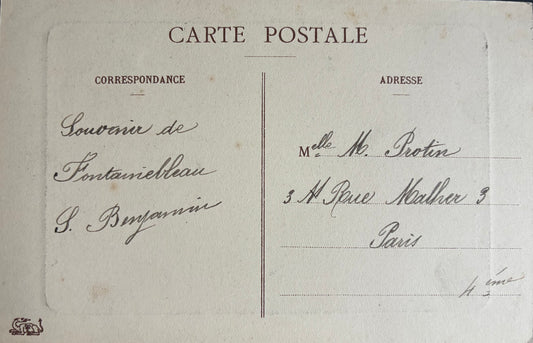 CARTE POSTALE
CORRESPONDANCE
Souvenir de
Fontainebleau
S. Benjamin
ADRESSE
Melle M. Protin
3 Rue Malher 3
Paris
4 ème